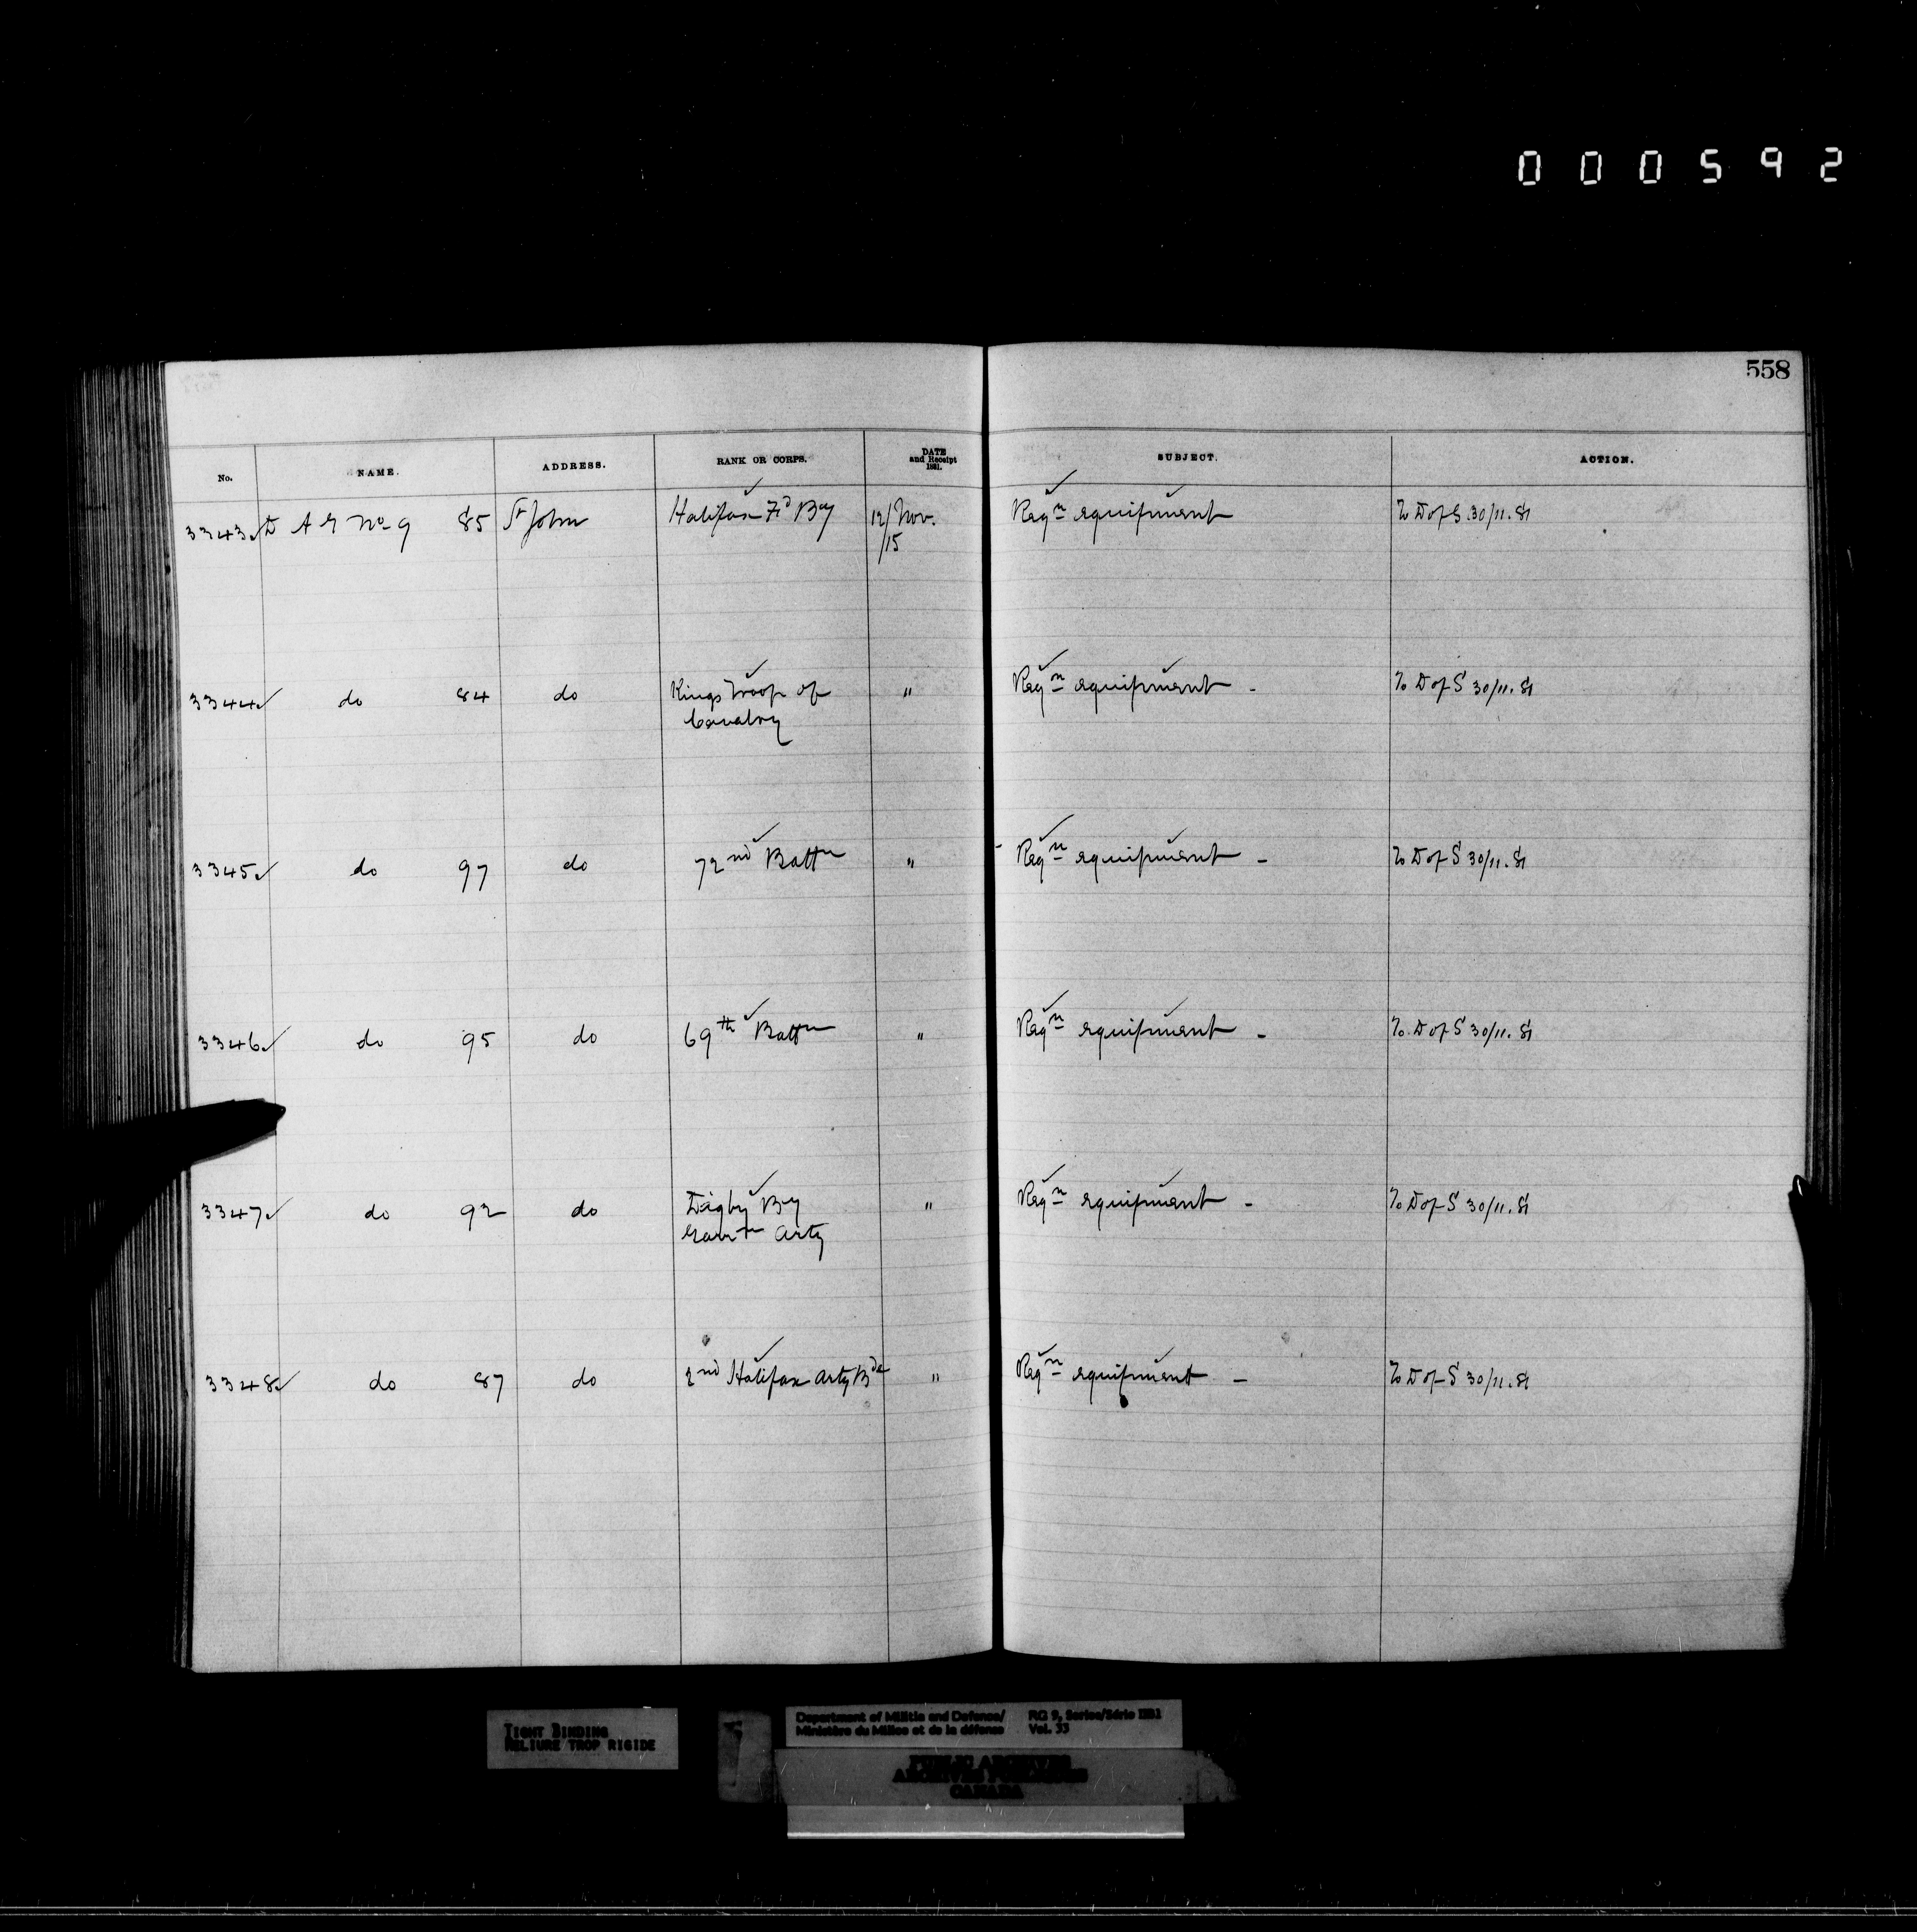 000592
558
No. NAME. ADDRESS. RANK OR CORPS. DATE and Receipt 1881. SUBJECT. ACTION.
3343 D A G No 9 85 St John Halifax Fd By 12/Nov. Reqn equipment To D of S 30/11.81
/15
3344 do 84 do Kings Troop of " Reqn equipment - To D of S 30/11.81
Cavalry
3345 do 97 do 72nd Battn " Reqn equipment - To D of S 30/11.81
3346 do 95 do 69th Battn " Reqn equipment - To D of S 30/11.81
3347 do 92 do Digby By " Reqn equipment - To D of S 30/11.81
Garrn Arty
3348 do 87 do 2nd Halifax Arty Bde " Reqn equipment - To D of S 30/11.81
TIGHT BINDING
RELIURE TROP RIGIDE
Department of Militia and Defence/ RG 9, Series/Série IIB1
Ministère du Milice et de la défense Vol. 33
PUBLIC ARCHIVES
ARCHIVES PUBLIQUES
CANADA